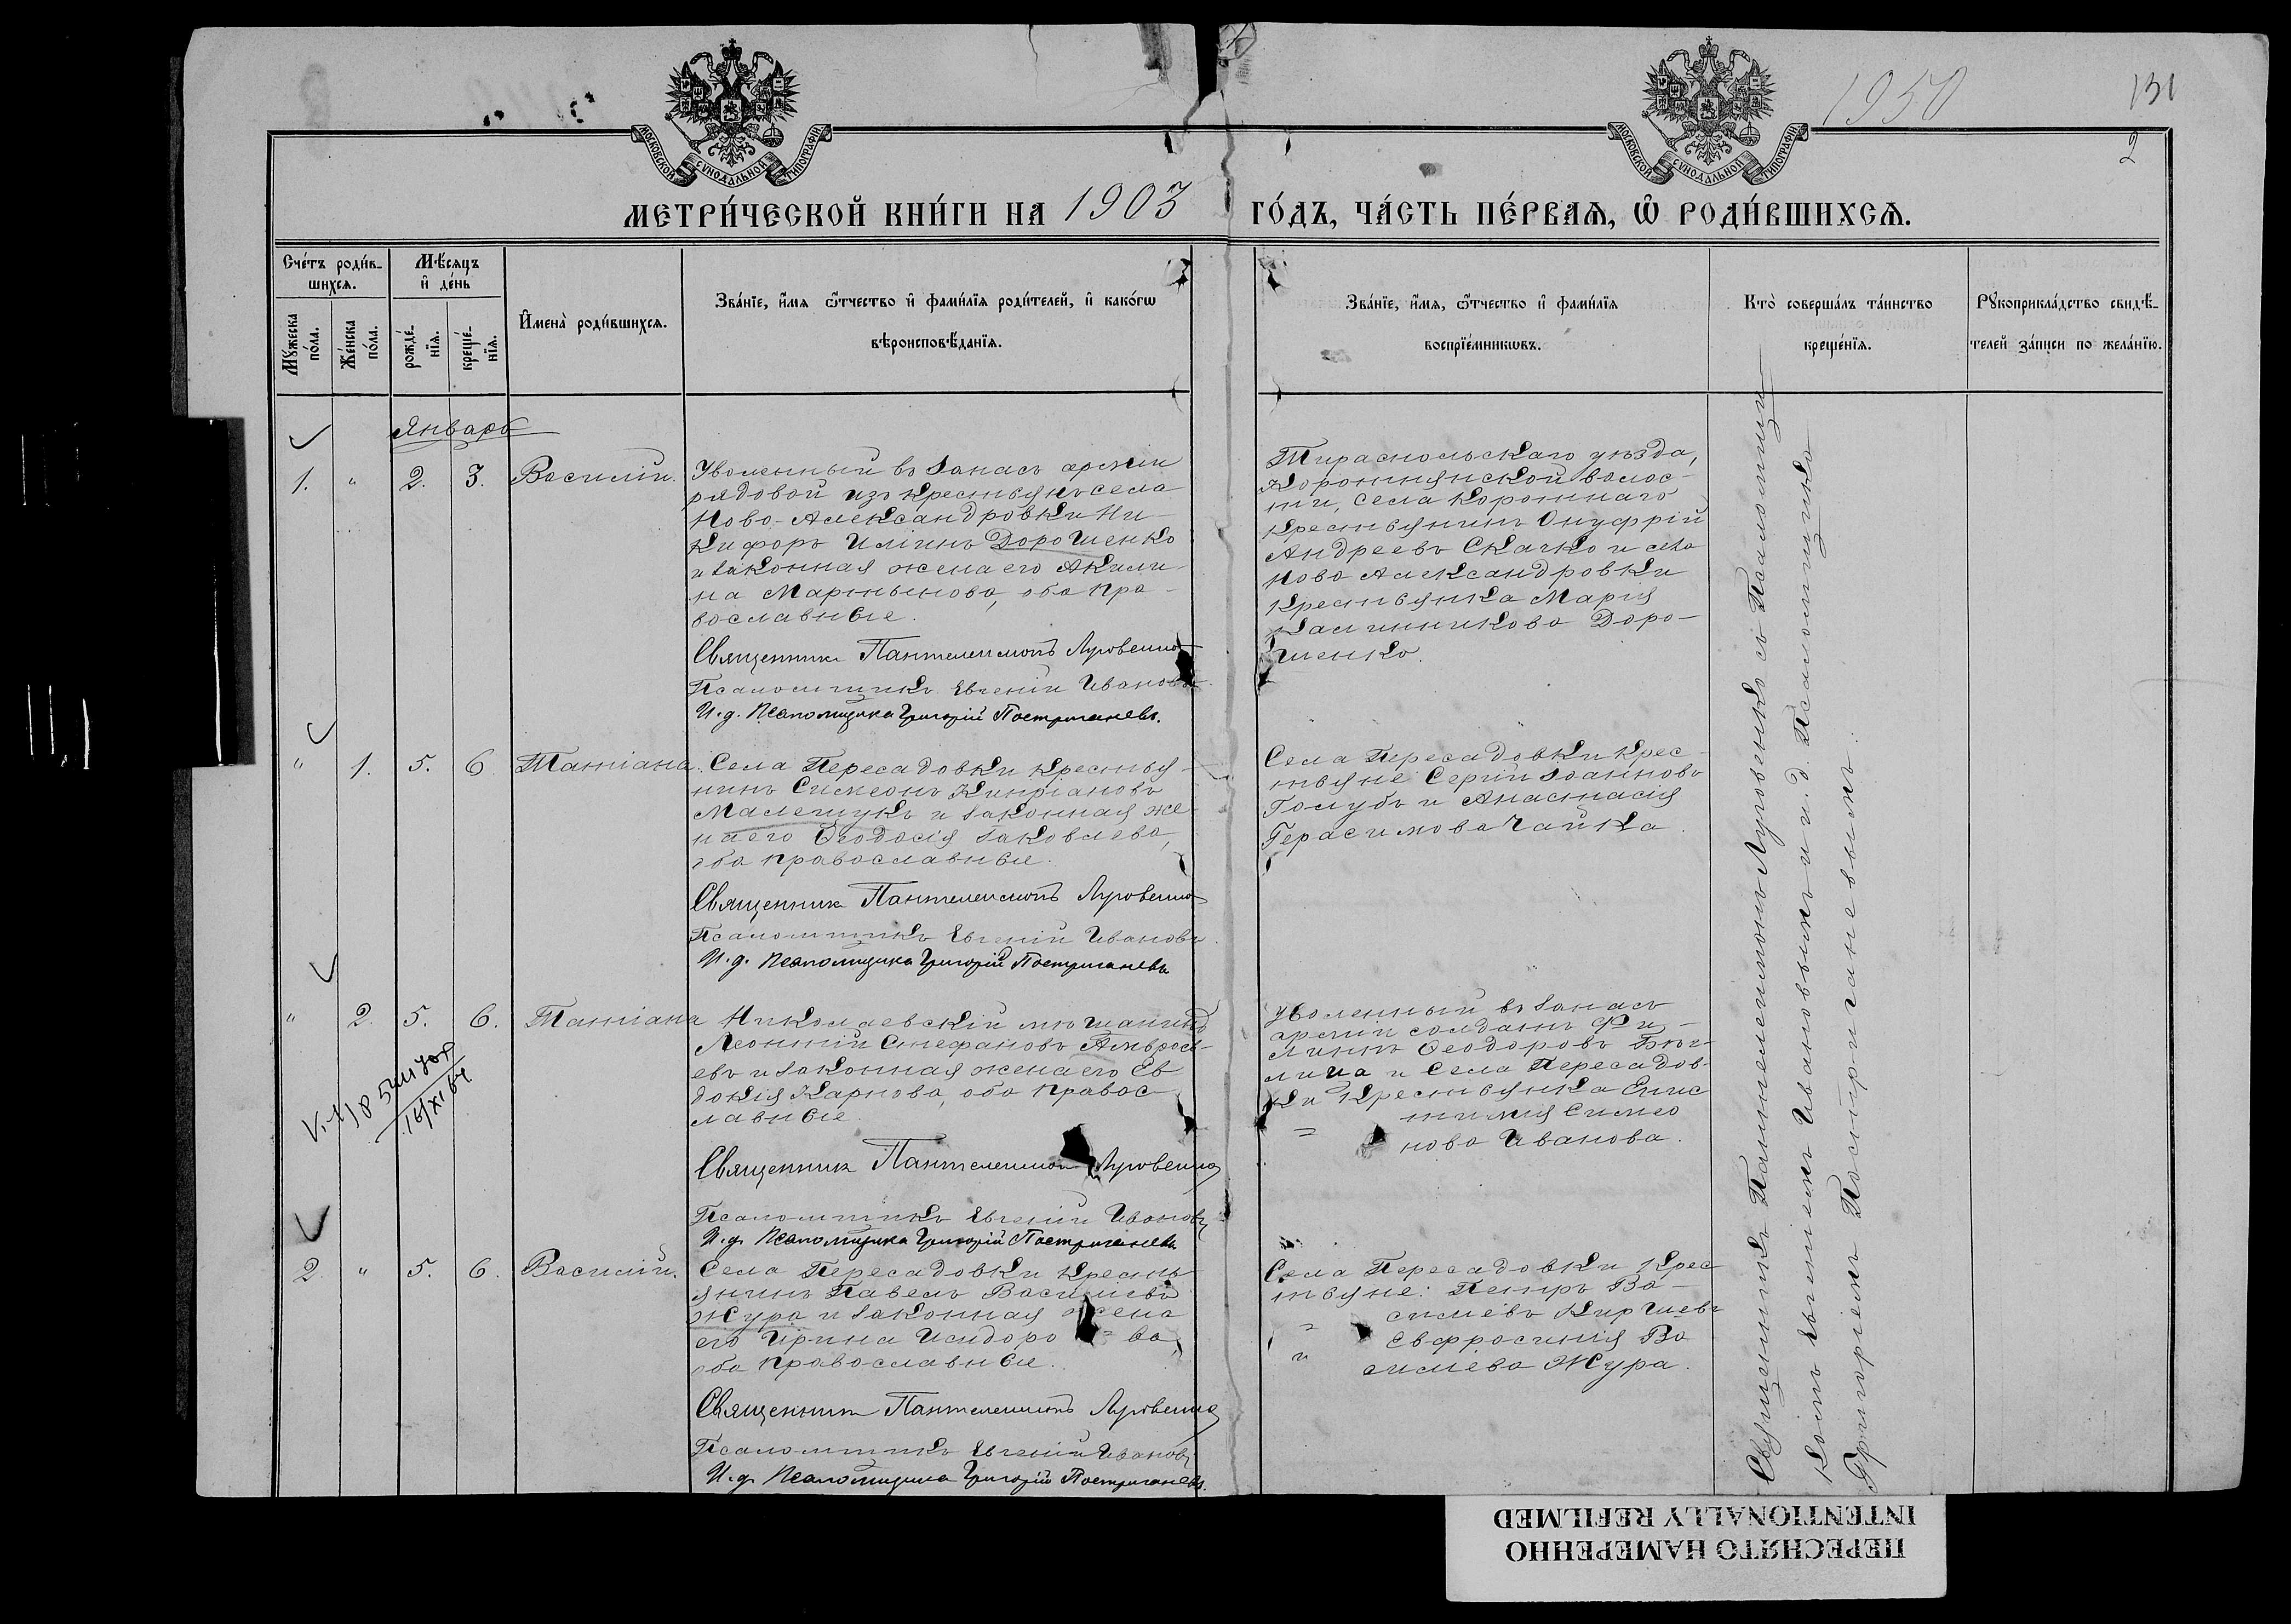 1950
131
2
МОСКОВСКОЙ СѴНОДАЛЬНОЙ ТИПОГРАФІИ
МОСКОВСКОЙ СѴНОДАЛЬНОЙ ТИПОГРАФІИ
МЕТРИ́ЧЕСКОЙ КНИ́ГИ НА 1903 ГО́ДЪ, ЧА́СТЬ ПЕ́РВАѦ, Ѡ РОДИ́ВШИХСѦ.
Сче́тъ роди́в-
шихсѧ.
Мꙋ́жеска
по́ла.
Же́нска
по́ла.
Мѣ́сѧцъ
и҆ де́нь
рожде́-
нїѧ.
креще́-
нїѧ.
И҆мена̀ роди́вшихсѧ.
Зва́нїе, и҆́мѧ ѻ҆́тчество и҆ фами́лїѧ роди́телей, и҆ како́гѡ
вѣроисповѣ́данїѧ.
Зва́нїе, и҆́мѧ, ѻ҆́тчество и҆ фами́лїѧ
воспрїе́мникѡвъ.
Кто̀ соверша́лъ та́инство
креще́нїѧ.
Рꙋкоприкла́дство свидѣ́-
телей за́писи по жела́нїю.
Январь
1. " 2. 3. Василій.
Уволенный въ запасъ арміи
рядовой изъ крестьянъ села
Ново-Александровки Ни-
кифоръ Иліинъ Дорошенко
и законная жена его Акили-
на Мартынова, оба пра-
вославные.
Священникъ Пантелеимонъ Луговенко
Псаломщикъ Евгеній Ивановъ
И. д. Псаломщика Григорій Постригачевъ.
Тираспольскаго уѣзда,
Коротнянской волос-
ти, села Коротнаго
крестьянинъ Онуфрій
Андреевъ Скачко и села
Ново Александровки
крестьянка Марія
Калинникова Доро-
шенко.
" 1. 5. 6. Татіана.
Села Пересадовки крестья-
нинъ Симеонъ Кипріановъ
Малещукъ и законная же
на его Ѳеодосія Іаковлева,
оба православные.
Священникъ Пантелеимонъ Луговенко
Псаломщикъ Евгеній Ивановъ.
И. д. Псаломщика Григорій Постригачевъ
Села Пересадовки крес-
тьяне Сергій Іоанновъ
Голубъ и Анастасія
Герасимова Чайка.
" 2. 5. 6. Татіана
Николаевскій мѣщанинъ
Леонтій Стефановъ Амврось-
евъ и законная жена его Ев
докія Карпова, оба правос-
лавные
Священникъ Пантелеимонъ Луговенко
Псаломщикъ Евгеній Ивановъ
И. д. Псаломщика Григорій Постригачевъ
Уволенный въ запасъ
арміи солдатъ Фи-
липпъ Ѳеодоровъ
и села Пересадов-
ки крестьянка Епис
тимія Симео
= нова Иванова.
2 " 5. 6. Василій.
Села Пересадовки кресть
янинъ Павелъ Василіевъ
Жура и законная жена
его Ирина Исидоро = ва,
оба православные.
Священникъ Пантелеимонъ Луговенко
Псаломщикъ Евгеній Ивановъ
И. д. Псаломщика Григорій Постригачевъ.
Села Пересадовки крес
тьяне: Петръ Ва-
= силіевъ
и Евфросинія Ва
силіева Жура.
Священникъ Пантелеимонъ Луговенко съ Псаломщи-
комъ Евгеніемъ Ивановымъ и и. д. Псаломщика
Григоріемъ Постригачевымъ.
ПЕРЕСНЯТО НАМЕРЕННО
INTENTIONALLY REFILMED